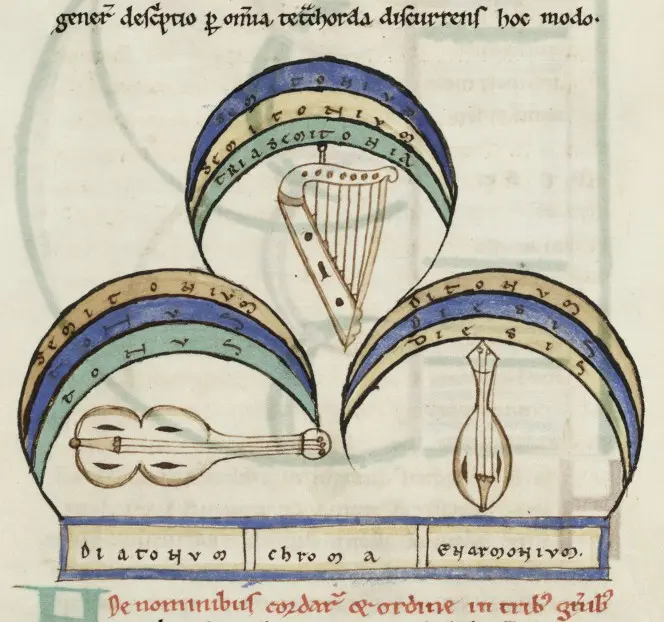 gener̄ descͥptio ꝑ om̄ia tet̄chorda discurrens hoc modo.
semitonium
semitonium
triasemitonia
semitonium
tonus
tonus
ditonum
diesis
diesis
Diatonum
chroma
enarmonium.
De nominibus cordar̄ & ordine in tribꝰ gn̄ibꝰ